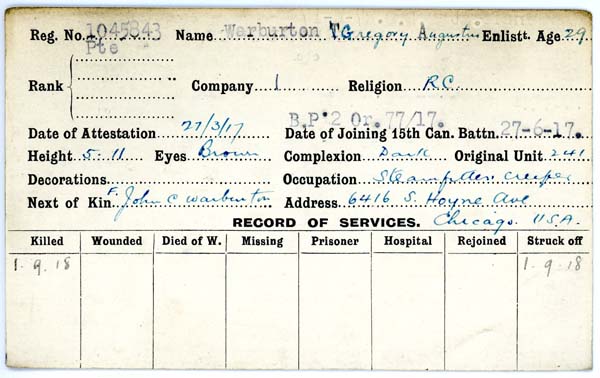 Reg. No. 1045843 Name Warburton Gregory Augustus Enlistt. Age 29
Pte
Rank Company 1 Religion R.C.
B.P. 2 Or. 77/17.
Date of Attestation 27/3/17 Date of Joining 15th Can. Battn. 27-6-17.
Height 5. 11 Eyes Brown Complexion Dark Original Unit 241
Decorations Occupation
Next of Kin F. John C Warburton Address 6416 S. Hoyne Ave
Chicago. USA.
RECORD OF SERVICES.
Killed Wounded Died of W. Missing Prisoner Hospital Rejoined Struck off
1. 9. 18 1. 9. 18